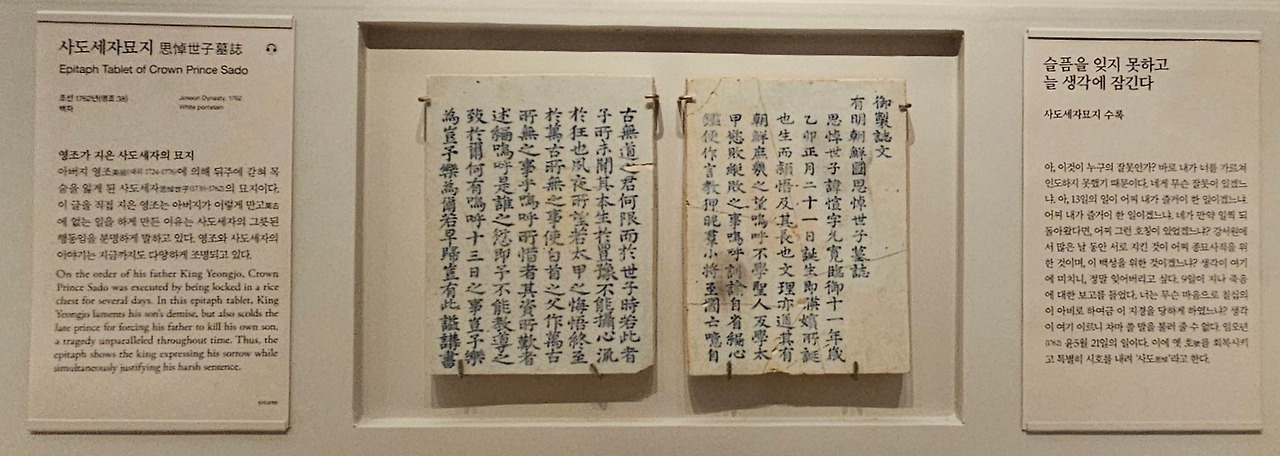 사도세자묘지 思悼世子墓誌
Epitaph Tablet of Crown Prince Sado
조선 1762년(영조 38)
백자
Joseon Dynasty, 1762
White porcelain
영조가 지은 사도세자의 묘지
아버지 영조英祖(재위 1724-1776)에 의해 뒤주에 갇혀 목
숨을 잃게 된 사도세자思悼世子(1735-1762)의 묘지이다.
이 글을 직접 지은 영조는 아버지가 이렇게 만고萬古
에 없는 일을 하게 만든 이유는 사도세자의 그릇된
행동임을 분명하게 말하고 있다. 영조와 사도세자의
이야기는 지금까지도 다양하게 조명되고 있다.
On the order of his father King Yeongjo, Crown
Prince Sado was executed by being locked in a rice
chest for several days. In this epitaph tablet, King
Yeongjo laments his son's demise, but also scolds the
late prince for forcing his father to kill his own son,
a tragedy unparalleled throughout time. Thus, the
epitaph shows the king expressing his sorrow while
simultaneously justifying his harsh sentence.
御製誌文
有明朝鮮國思悼世子墓誌
思悼世子諱愃字允寬臨御十一年歲
乙卯正月二十一日誕生即暎嬪所誕
也生而穎悟及其長也文理亦通其有
朝鮮庶幾之望嗚呼不學聖人反學太
甲慾敗縱敗之事嗚呼訓諭自省編心
鑑便作言敎狎昵羣小將至國亡噫自
古無道之君何限而於世子時若此者
予所未聞其本生於豊豫不能攝心流
於狂也夙夜所望若太甲之悔悟終至
於萬古所無之事使白首之父作萬古
所無之事乎嗚呼所惜者其資所歎者
述編嗚呼是誰之愆即予不能教導之
致於爾何有嗚呼十三日之事豈予樂
為豈予樂為爾若早歸豈有此謚講書
슬픔을 잊지 못하고
늘 생각에 잠긴다
사도세자묘지 수록
아, 이것이 누구의 잘못인가? 바로 내가 너를 가르쳐
인도하지 못했기 때문이다. 네게 무슨 잘못이 있겠느
냐. 아, 13일의 일이 어찌 내가 즐거이 한 일이겠느냐.
어찌 내가 즐거이 한 일이겠느냐. 네가 만약 일찍 되
돌아왔다면, 어찌 그런 호칭이 있었겠느냐? 강서원에
서 많은 날 동안 서로 지킨 것이 어찌 종묘사직을 위
한 것이며, 이 백성을 위한 것이겠느냐? 생각이 여기
에 미치니, 정말 잊어버리고 싶다. 9일이 지나 죽음
에 대한 보고를 들었다. 너는 무슨 마음으로 칠십의
이 아비로 하여금 이 지경을 당하게 하였느냐? 생각
이 여기 이르니 차마 쓸 말을 불러 줄 수 없다. 임오년
(1762) 윤5월 21일의 일이다. 이에 옛 호號를 회복시키
고 특별히 시호를 내려 '사도思悼'라고 한다.